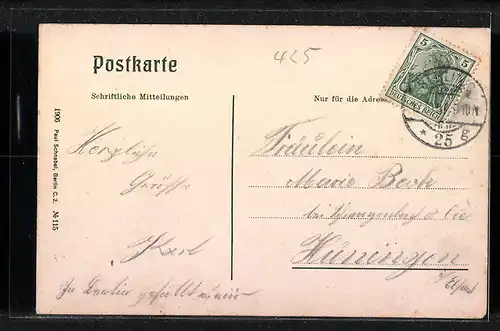 425
Postkarte
Schriftliche Mitteilungen
Nur für die Adres
5 5
DEUTSCHES REICH
* 25 g
1906 Paul Schnabel, Berlin C. 2. № 115
Herzliche
Grüsse
Karl
in Berlin gefällt es mir
Fräulein
Marie Beck
bei
Hüningen
i/Elsass